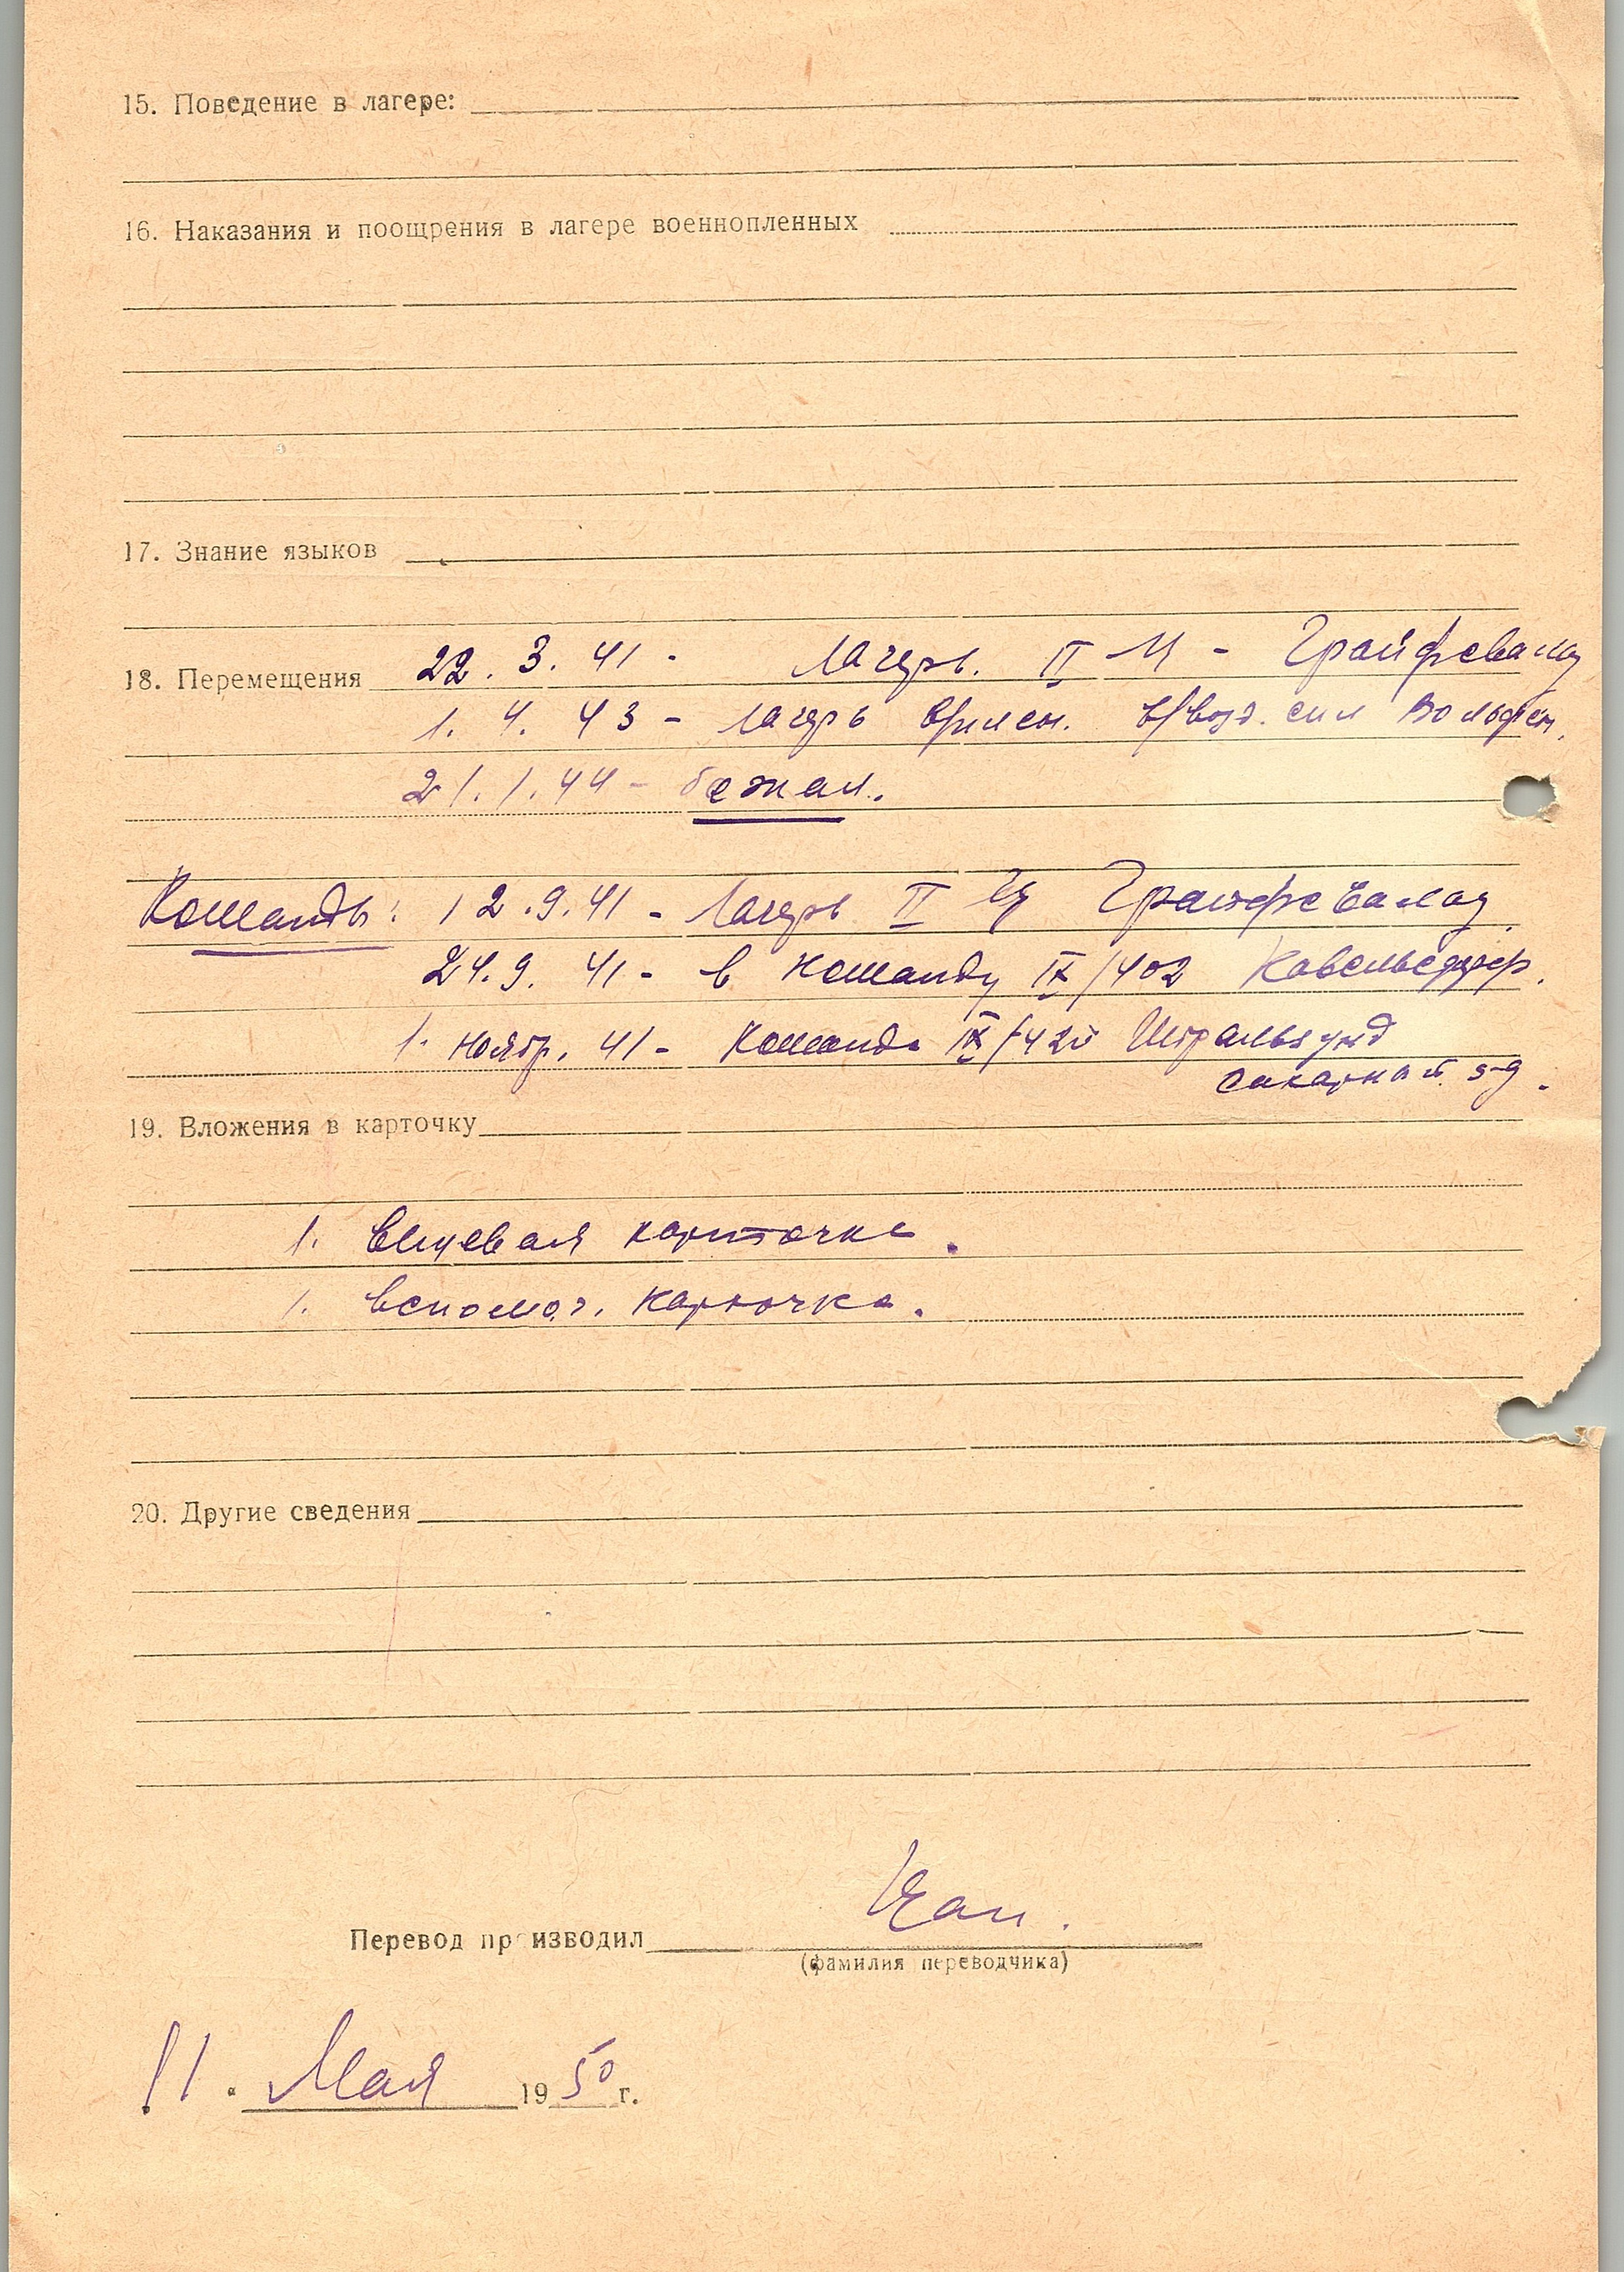 15. Поведение в лагере:
16. Наказания и поощрения в лагере военнопленных
17. Знание языков
18. Перемещения 22. 3. 41 - Лагерь. II - Грайфсвальд
1. 4. 43 - лагерь воен. сил Вольфен.
21.1.44 - бежал.
Команды: 12.9.41 - Лагерь II Ц Грайфсвальд.
24.9. 41 - в команду IX/402
1. Ноябр. 41 - Команда IX/420 Штральзунд
сахарный з-д.
19. Вложения в карточку
1. вещевая карточка.
1. вспомог. карточка.
20. Другие сведения
Перевод производил
(фамилия переводчика)
11. Мая 1950 г.